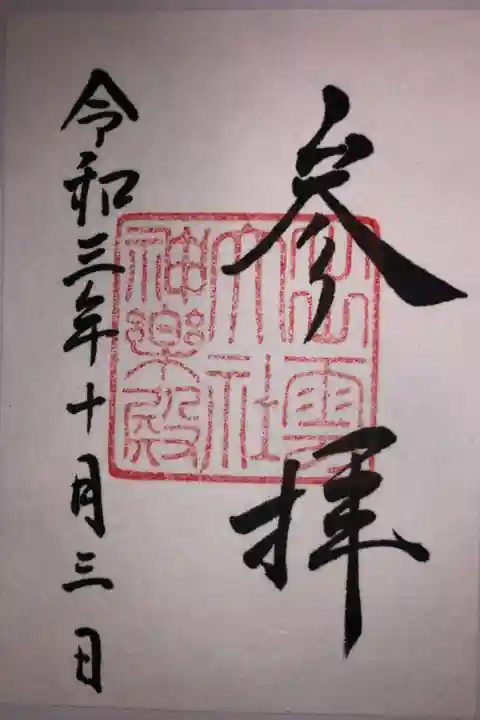 参拝
出雲
大社
神楽殿
令和三年十月三日